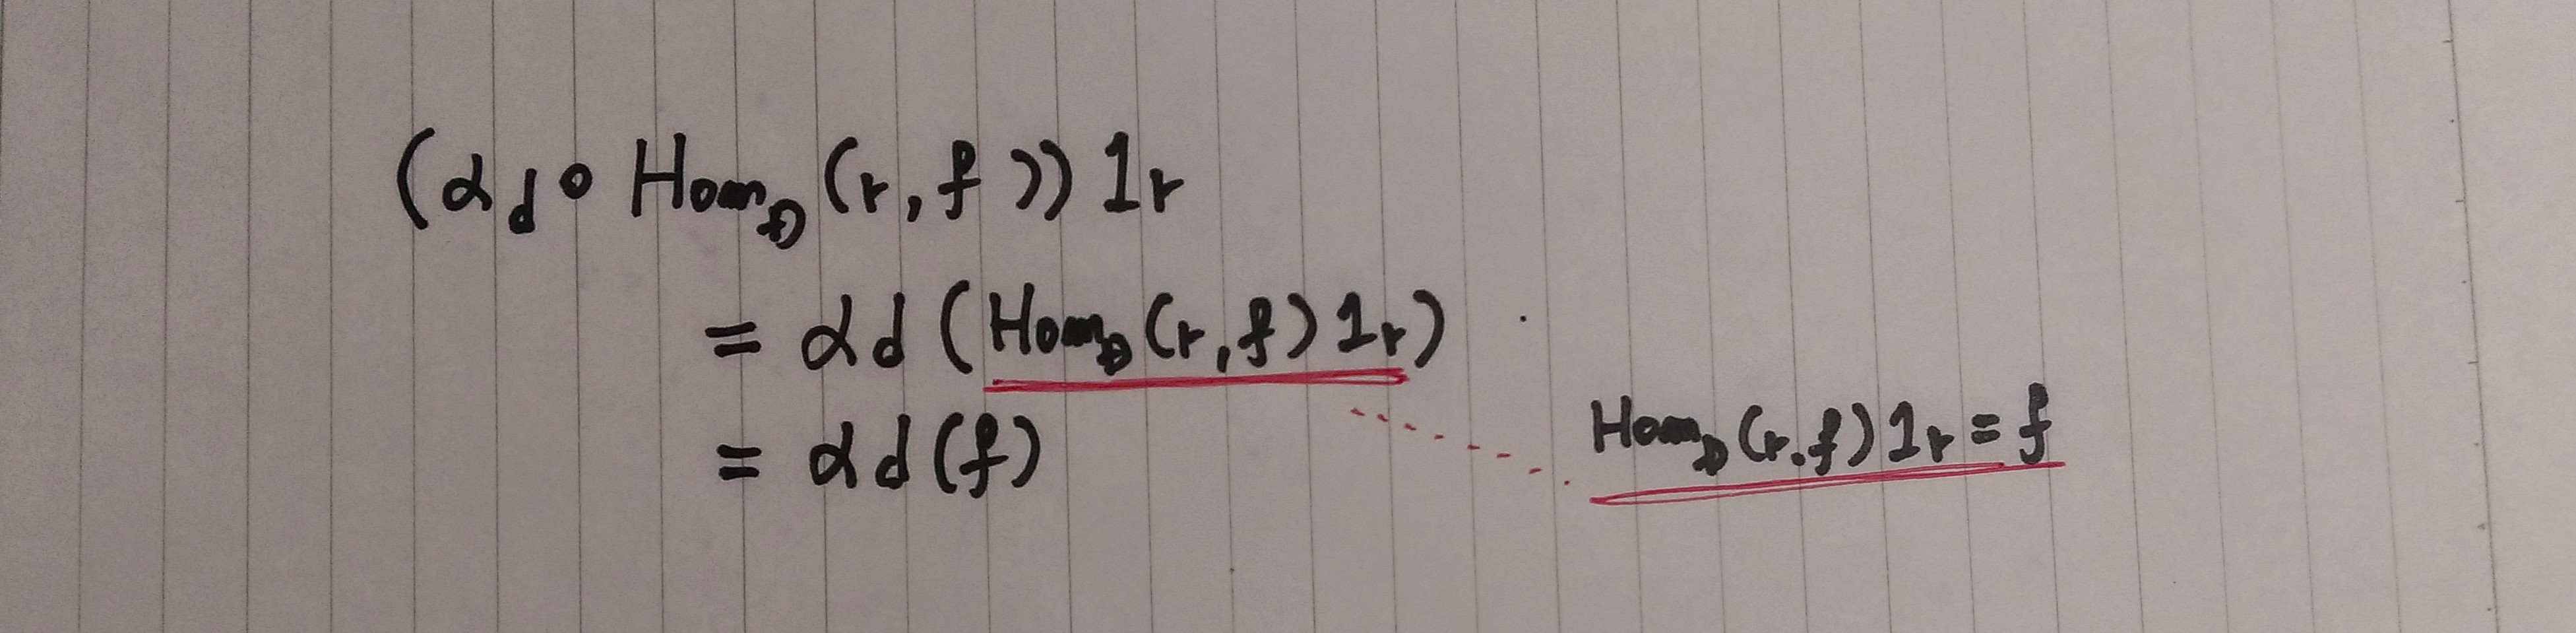 (α_d ∘ Hom_D (r, f)) 1r
= αd (Hom_D (r, f) 1r)
= αd (f)
Hom_D (r, f) 1r = f